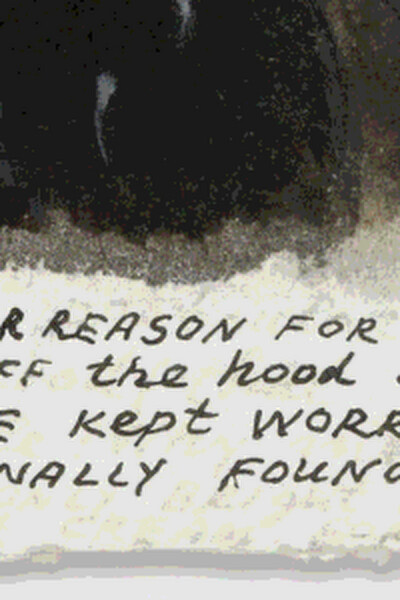 R REASON FOR
FF the hood
E kept WORR
NALLY FOUND